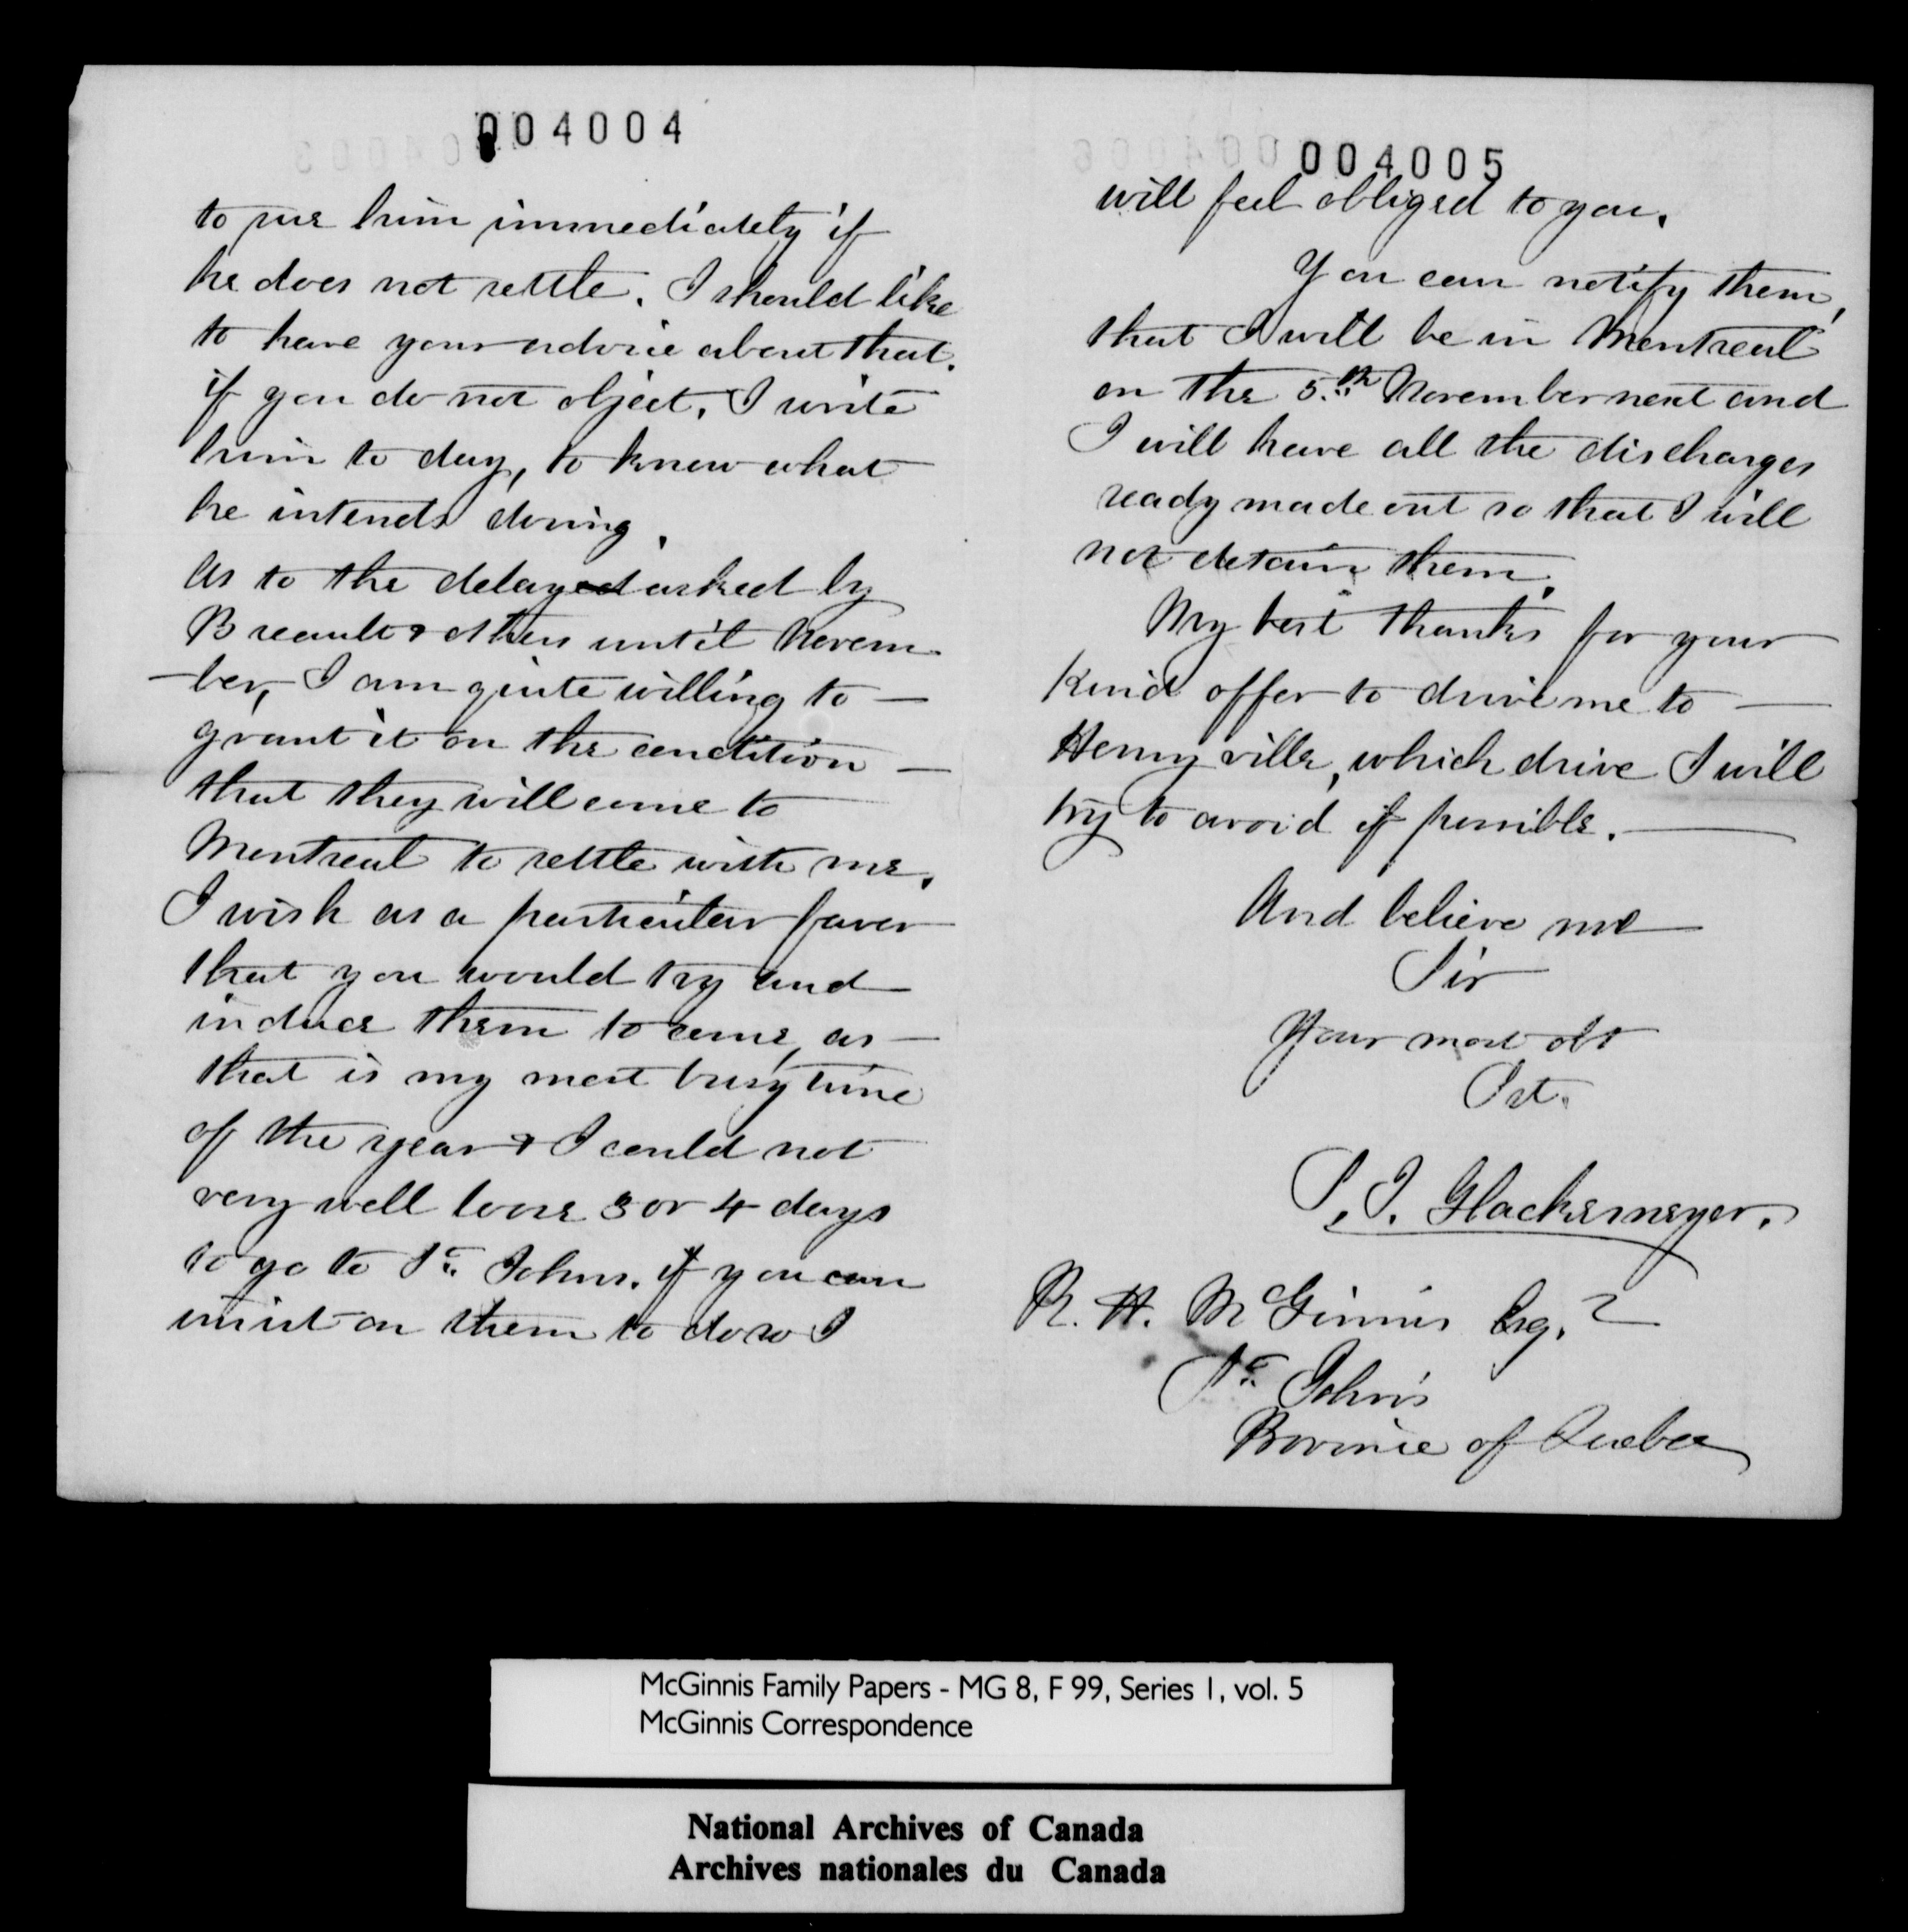 004004
to sue him immediately if
he does not settle. I should like
to have your advice about that.
if you do not object, I write
him to day, to know what
he intends doing.
As to the delayed asked by
Breault & others until Novem-
-ber, I am quite willing to —
grant it on the condition —
that they will come to
Montreal to settle with me.
I wish as a particular favor
that you would try and
induce them to come, as —
that is my most busy time
of the year & I could not
very well loose 3 or 4 days
to go to St. Johns. if you can
insist on them to do so I
004005
will feel obliged to you.
You can notify them,
that I will be in Montreal
on the 5th November next and
I will have all the discharges
ready made out so that I will
not detain them.
My best thanks for your
kind offer to drive me to —
Henryville, which drive I will
try to avoid if possible. —
And believe me
Sir
Your most obt
Svt.
S. J. Glackemeyer.
R. H. McGinnis Esq.
St. John's
Province of Quebec
McGinnis Family Papers - MG 8, F 99, Series 1, vol. 5
McGinnis Correspondence
National Archives of Canada
Archives nationales du Canada